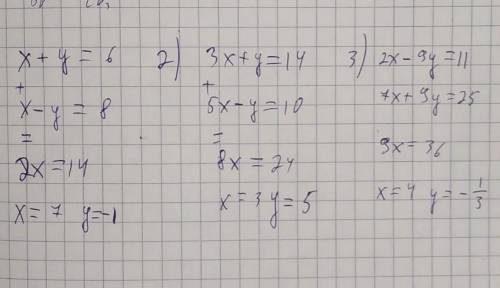 x + y = 6
+
x - y = 8
=
2x = 14
x = 7 y = -1
2) 3x + y = 14
+
5x - y = 10
=
8x = 24
x = 3 y = 5
3) 2x - 9y = 11
7x + 9y = 25
9x = 36
x = 4 y = - 1/3